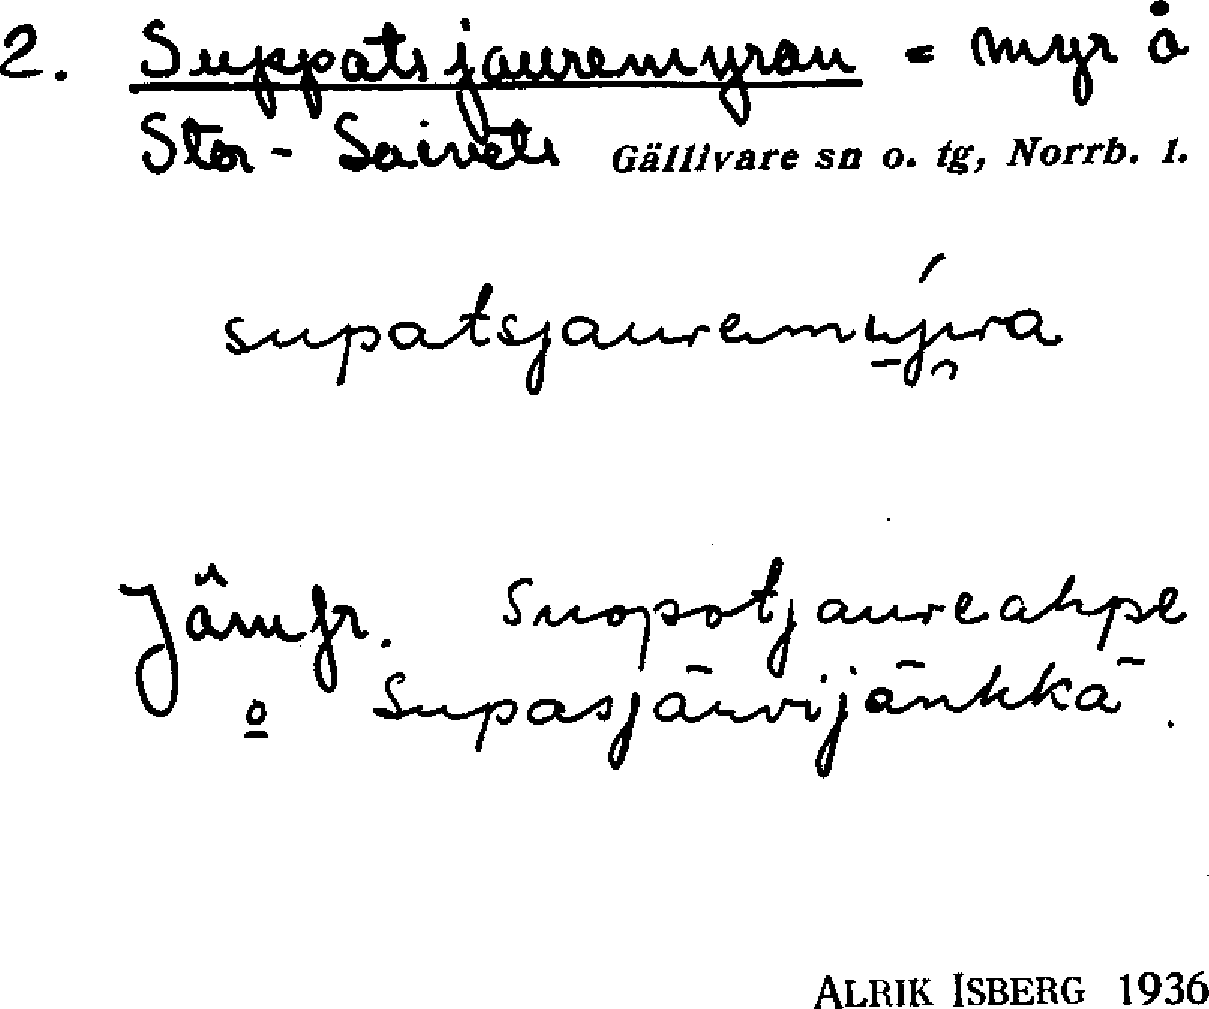 2. Suppatsjauremyran = myr å
Stor-Saivets Gällivare sn o. tg, Norrb. l.
supatsjauremyjura
Jämfr. Suopotjaureahpe
o Supasjärvijänkkä.
ALRIK ISBERG 1936